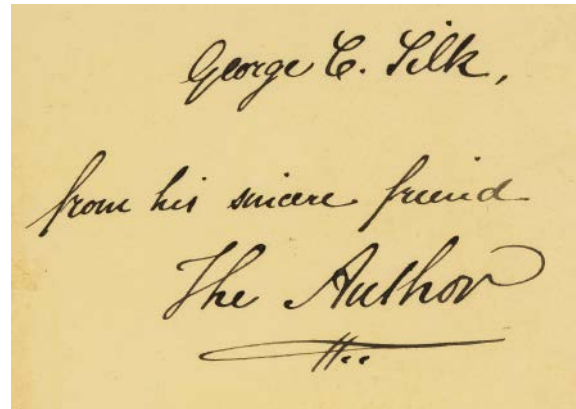 George C. Silk,
from his sincere friend
The Author